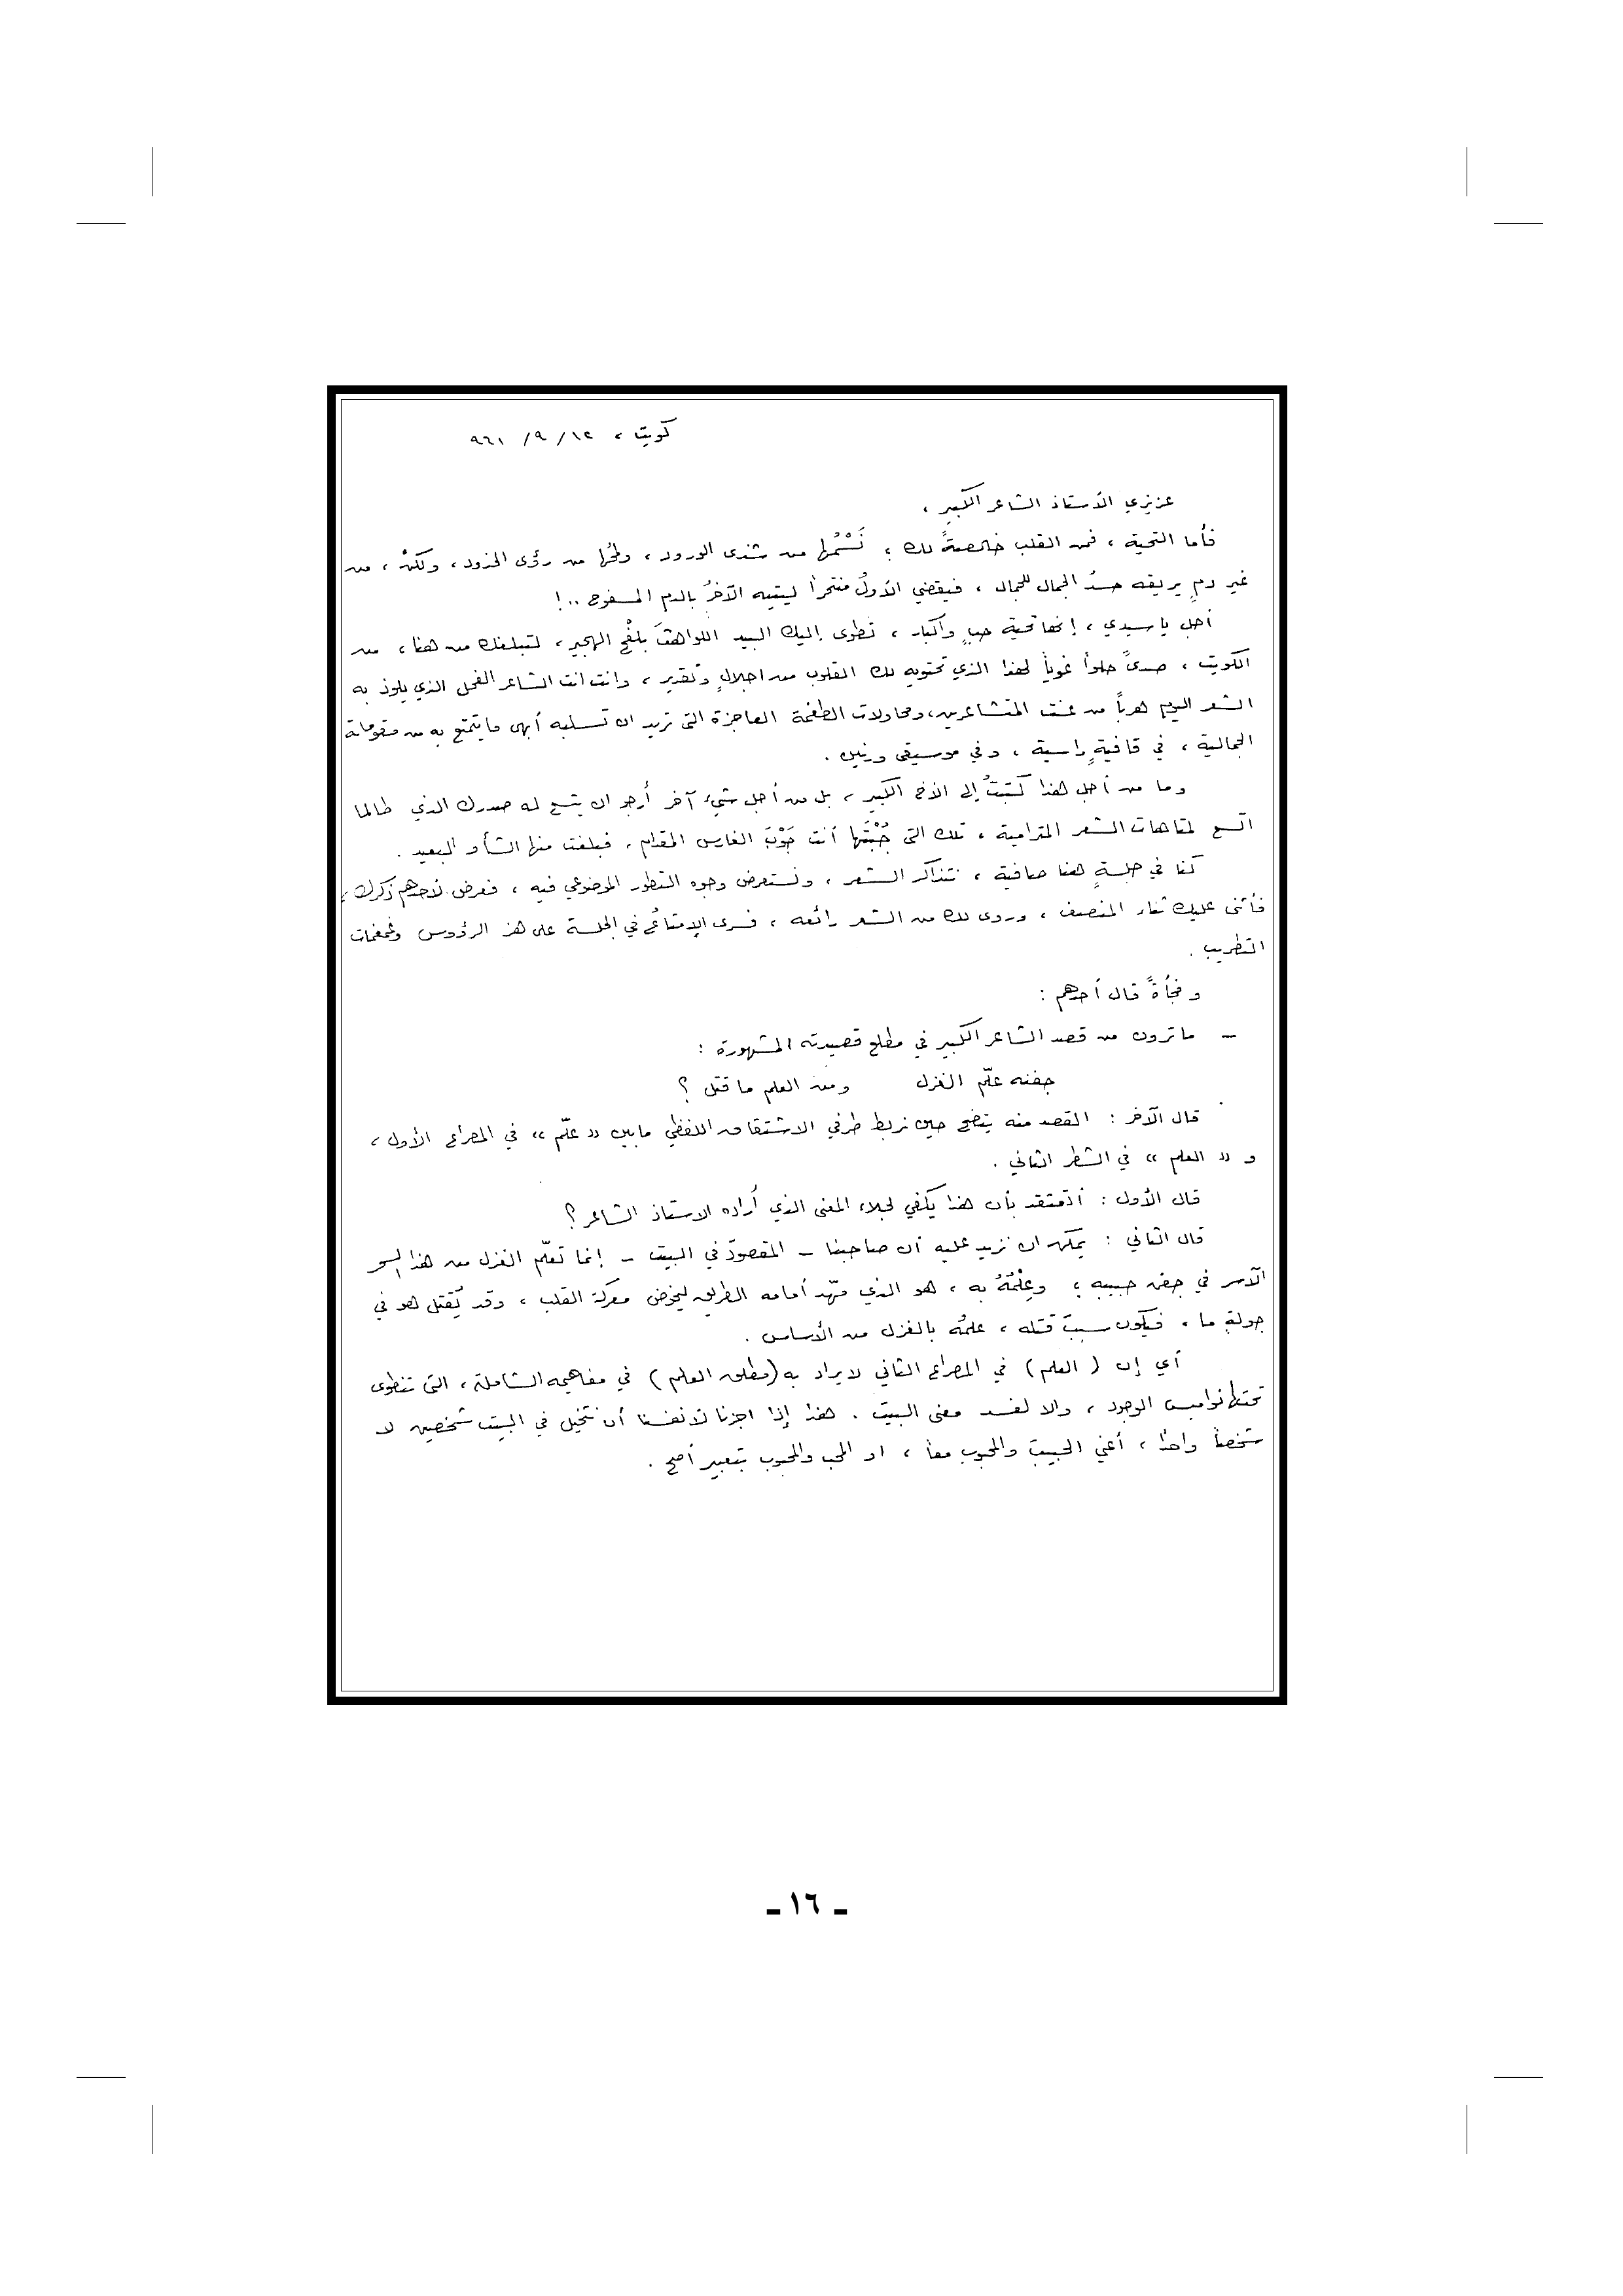 كويت ، ١٢ / ٩ / ٩٦١
عزيزي الأستاذ الشاعر الكبير ،
فأما التحية ، فمن القلب خالصةً لك ؛ نَسْمُها من شذى الورود ، ولمحُها من رؤى الخدود ، ولكنْ ، من
غير دمٍ يريقه حسدُ الجمال للجمال ، فيقضي الأولُ منتحراً ليتيه الآخرُ بالدم المسفوح ..!
أجل يا سيدي ، إنها تحية حبٍ وإكبار ، تطوى إليك البيد اللواهثَ بلفْح الهجير ، لتبلغك من هنا ، من
الكويت ، صدىً حلواً عفوياً لهذا الذي تحتويه لك القلوب من اجلالٍ وتقدير ، وانت انت الشاعر الفحل الذي يلوذ به
الشعر اليوم هرباً من عنت المتشاعرين، ومحاولات الطغمة العاجزة التي تريد ان تسلبه أبهى ما يتمتع به من مقوماته
الجمالية ، في قافيةٍ راسية ، وفي موسيقى ورنين .
وما من أجل هذا كتبتُ إلى الأخ الكبير ، بل من أجل شيء آخر أرجو ان يتسع له صدرك الذي طالما
اتسع لمتاهات الشعر المترامية ، تلك التي جُبْتَها أنت جَوْبَ الفارس المقدام ، فبلغت منها الشأو البعيد .
كنا في جلسةٍ هنا صافية ، نتذاكر الشعر ، ونستعرض وجوه التطور الموضوعي فيه ، فعرض لأحدهم ذكرك ،
فأثنى عليك ثناء المنصف ، وروى لك من الشعر رائعه ، فسرى الإمتاعُ في الجلسة على هز الرؤوس وغمغمات
التطريب .
وفجأةً قال أحدهم :
— ما ترون من قصد الشاعر الكبير في مطلع قصيدته المشهورة :
جفنه علّم الغزل ومن العلم ما قتل ؟
قال الآخر : القصد منه يتضح حين نربط طرفي الاشتقاق اللفظي ما بين « علّم » في المصراع الأول ،
و « العلم » في الشطر الثاني .
قال الأول : أتعتقد بأن هذا يكفي لجلاء المعنى الذي أراده الاستاذ الشاعر ؟
قال الثاني : يمكن ان نزيد عليه أن صاحبنا – المقصودَ في البيت – إنما تعلّم الغزل من هذا السحر
الآسر في جفن حبيبه ؛ وعِلْمُهُ به ، هو الذي مهّد أمامه الطريق ليخوض معركة القلب ، وقد يُقتل هو في
جولةٍ ما ، فيكون سببَ قتله ، علمُه بالغزل من الأساس .
أي إن ( العلم ) في المصراع الثاني لا يراد به ( مطلق العلم ) في مفاهيمه الشاملة ، التي تنطوى
تحتها نواميس الوجود ، والا لفسد معنى البيت . هذا إذا اجزنا لأنفسنا أن نتخيل في البيت شخصين لا
شخصاً واحداً ، أعني الحبيبَ والمحبوب معاً ، او المحب والمحبوب بتعبير أصح .
ـ ١٦ ـ